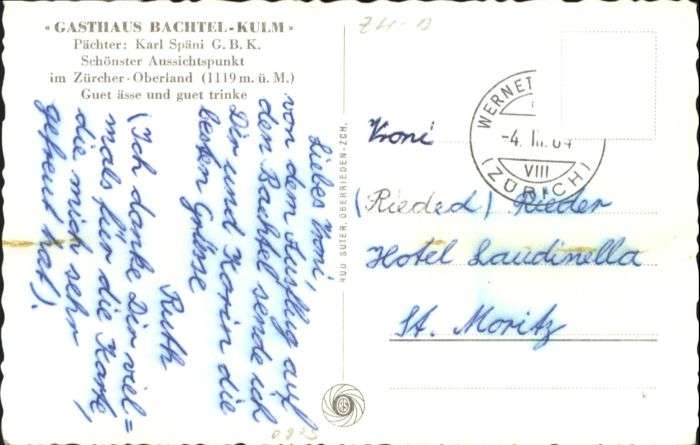 « GASTHAUS BACHTEL-KULM »
Pächter: Karl Späni G. B. K.
Schönster Aussichtspunkt
im Zürcher-Oberland (1119 m. ü. M.)
Guet ässe und guet trinke
Liebes Vroni,
von dem Ausflug auf
den Bachtel sende ich
Dir und Korin die
besten Grüsse
Ruth
(Ich danke Dir viel=
mals für die Karte,
die mich sehr
gefreut hat).
SUTER, OBERRIEDEN-ZCH.
WERNET
-4. III. 64
VIII
(ZÜRICH)
Vroni
(Rieded) Rieder
Hotel Laudinella
St. Moritz